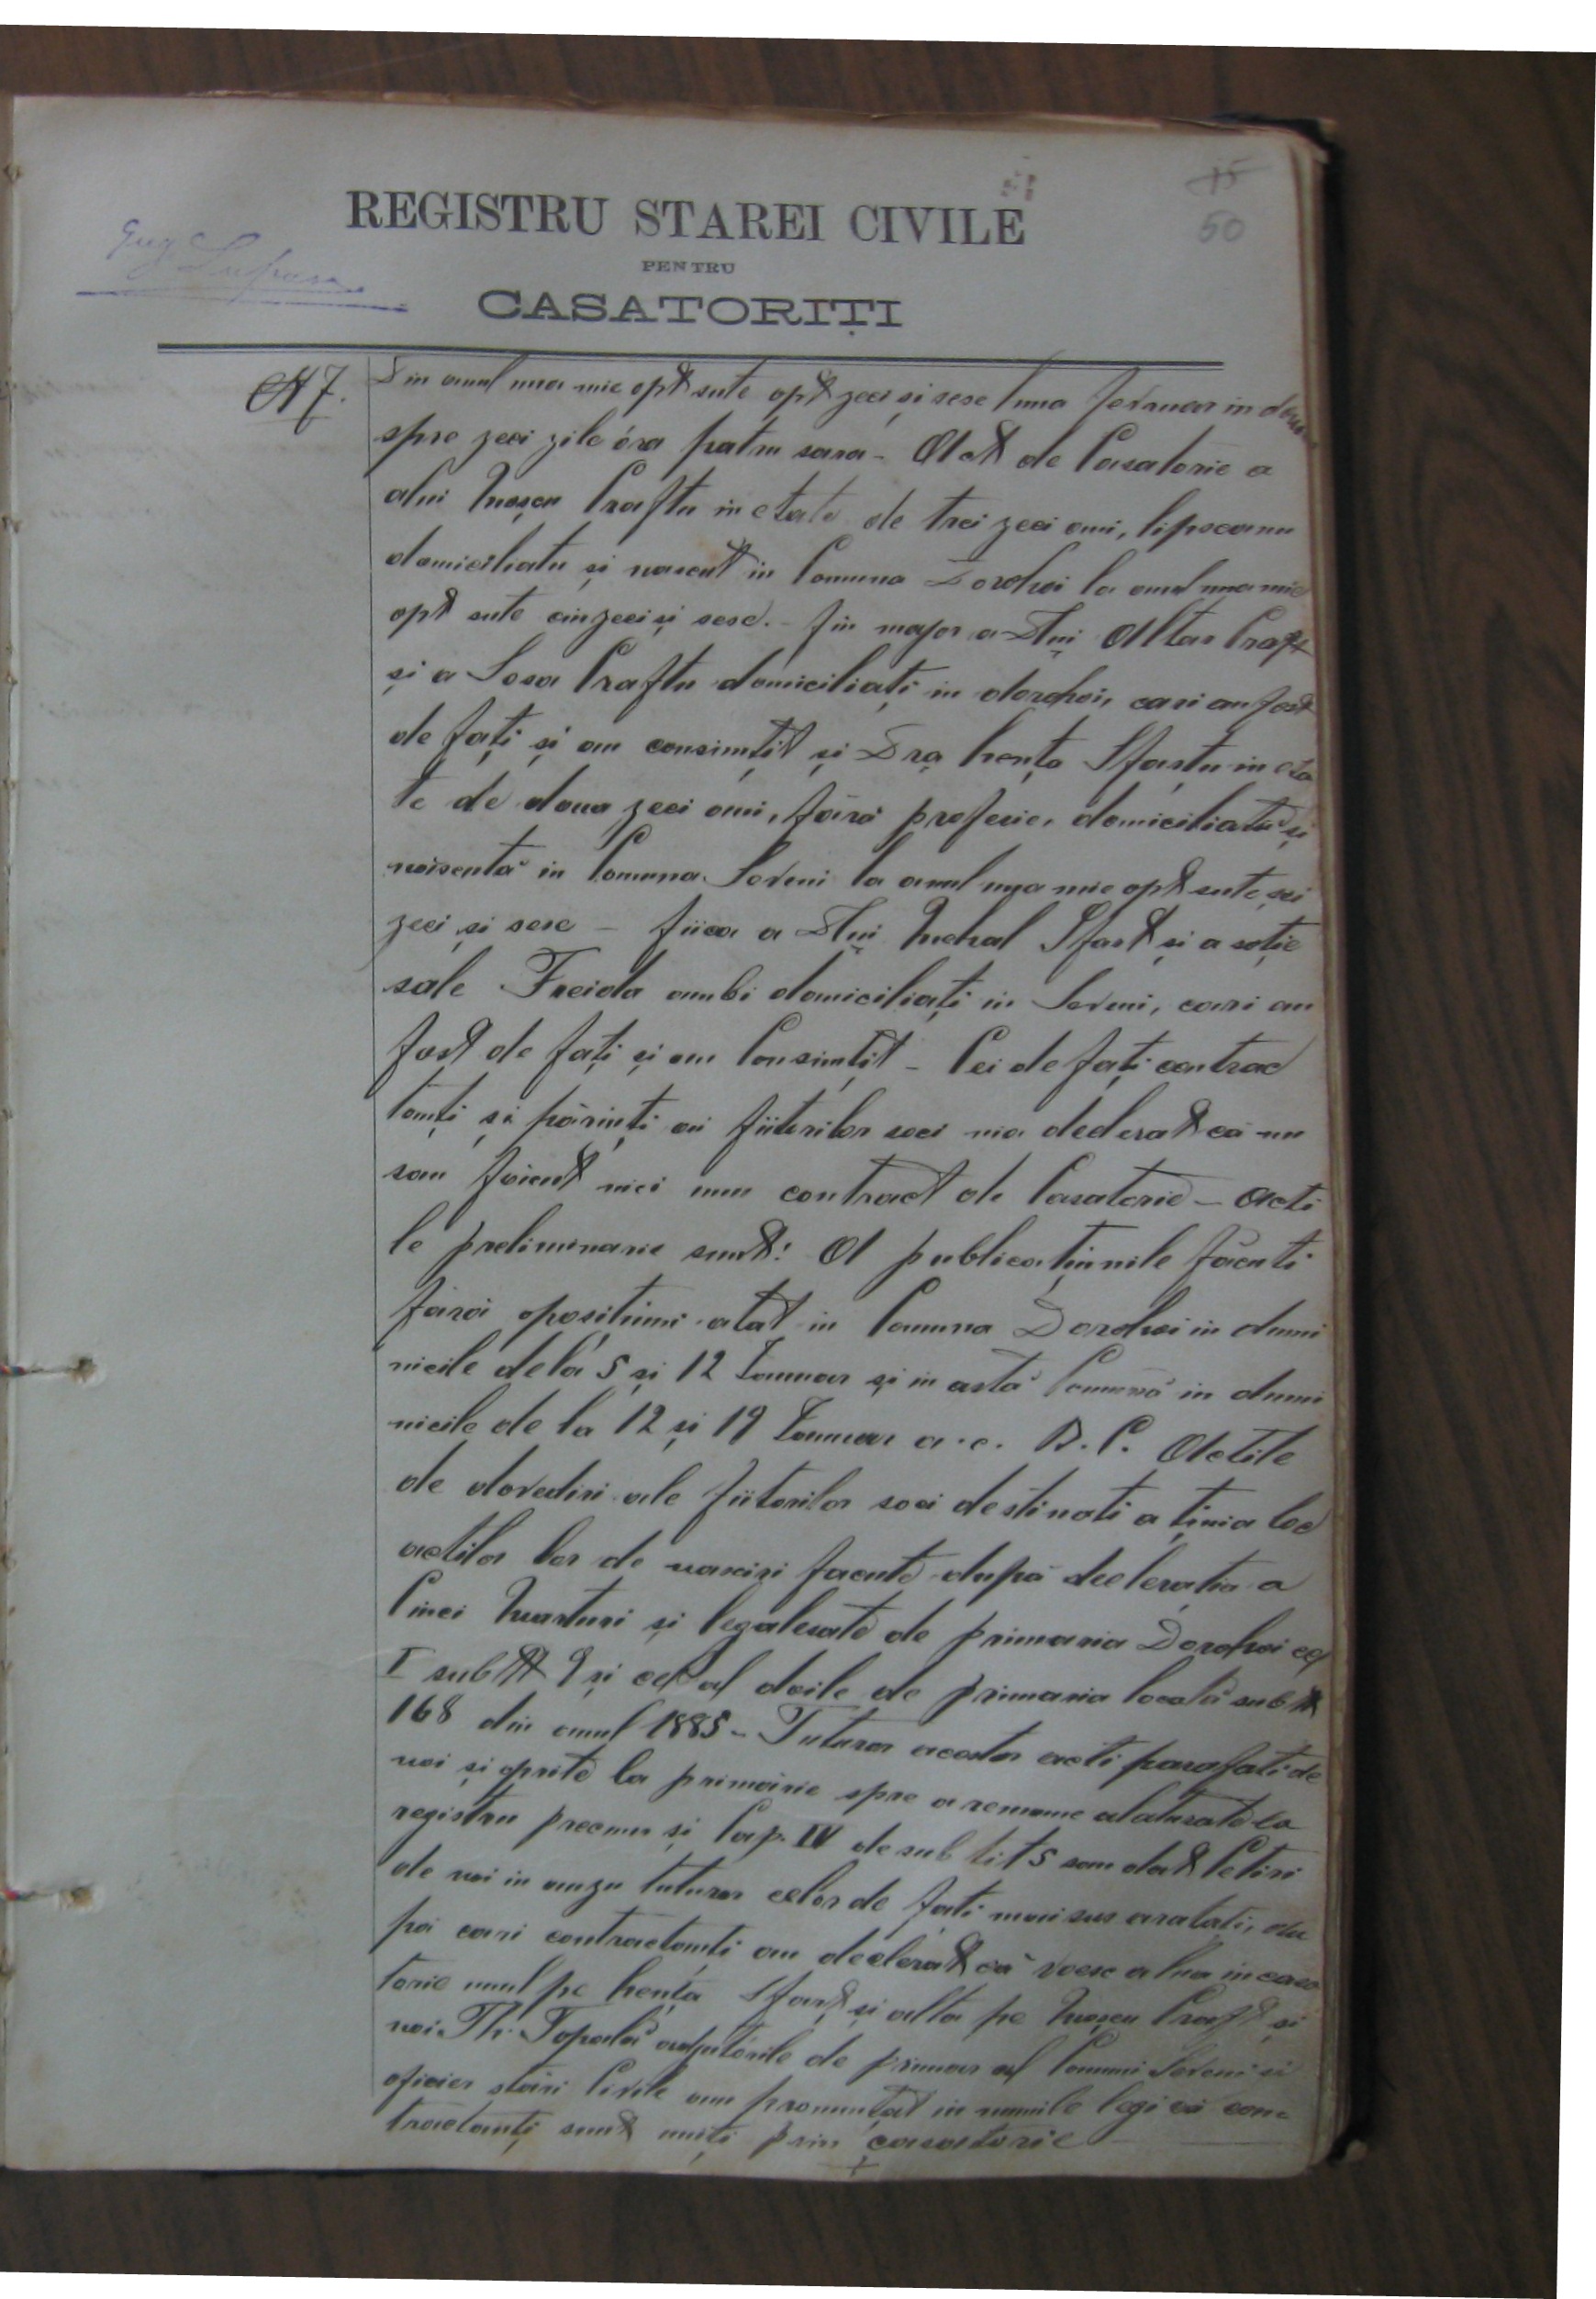 15
50
REGISTRU STAREI CIVILE
PENTRU
CASATORIȚI
N 7.
Din anul una mie opt sute opt zeci și sese luna fevruar in doua
spre zeci zile óra patru sara - Act de Casatorie a
alui Moșcu Craftu in etate de trei zeci ani, lipscanu
domiciliatu și nascut in Comuna Dorohoi la anul una mie
opt sute cinzeci și sese. - fiu major a Dlui Altar Craft
și a Sosa Craftu domiciliați in dorohoi, cari au fost
de fați și au consimțit și Dra hența Sfartu in eta
te de doua zeci ani, fără profesie, domiciliată și
născută in Comuna Saveni la anul una mie opt sute șei
zeci și sese - fiica a Dlui Mehal Sfart și a soție
sale Freida ambi domiciliați in Saveni, cari au
fost de fați și au Consimțit - Cei de fați contrac
tanți și părinți ai fiitorilor soci nia declerat că nu
sau făcut nici unu contract de Casatorie - Acti
le preliminarie sunt: A publicațiunile făcuti
fără opositiuni atat in Comuna Dorohoi in dumi
nicile dela 5 și 12 Ianuar și in astă Comună in dumi
nicile de la 12 și 19 Ianuar a.c. B.C. Actile
de dovediri ale fiitorilor soci destinati a ținia loc
actilor lor de nasciri facute după declerația a
Cinci Marturi și legalesate de primaria Dorohoi cel
I sub N 9 și cel al doile de primaria locală sub N
168 din anul 1885 - Tuturor acestor acti parafati de
noi și oprite la primărie spre a remane alaturate la
registru precum și Cap. IV de sub tit 5 sau dat Cetiri
de noi in auzu tuturor celor de fați mai sus aratati, du
pă cari contractanți au declerat că voesc a lua in casa
torie unul pe hența Sfart și alta pe Moșcu Craft și
noi Th. Topală adjutórile de primar al Comuni Saveni și
oficier stări Civile am pronunțat in numile legi că con-
tractanți sunt uniți prin casatorie